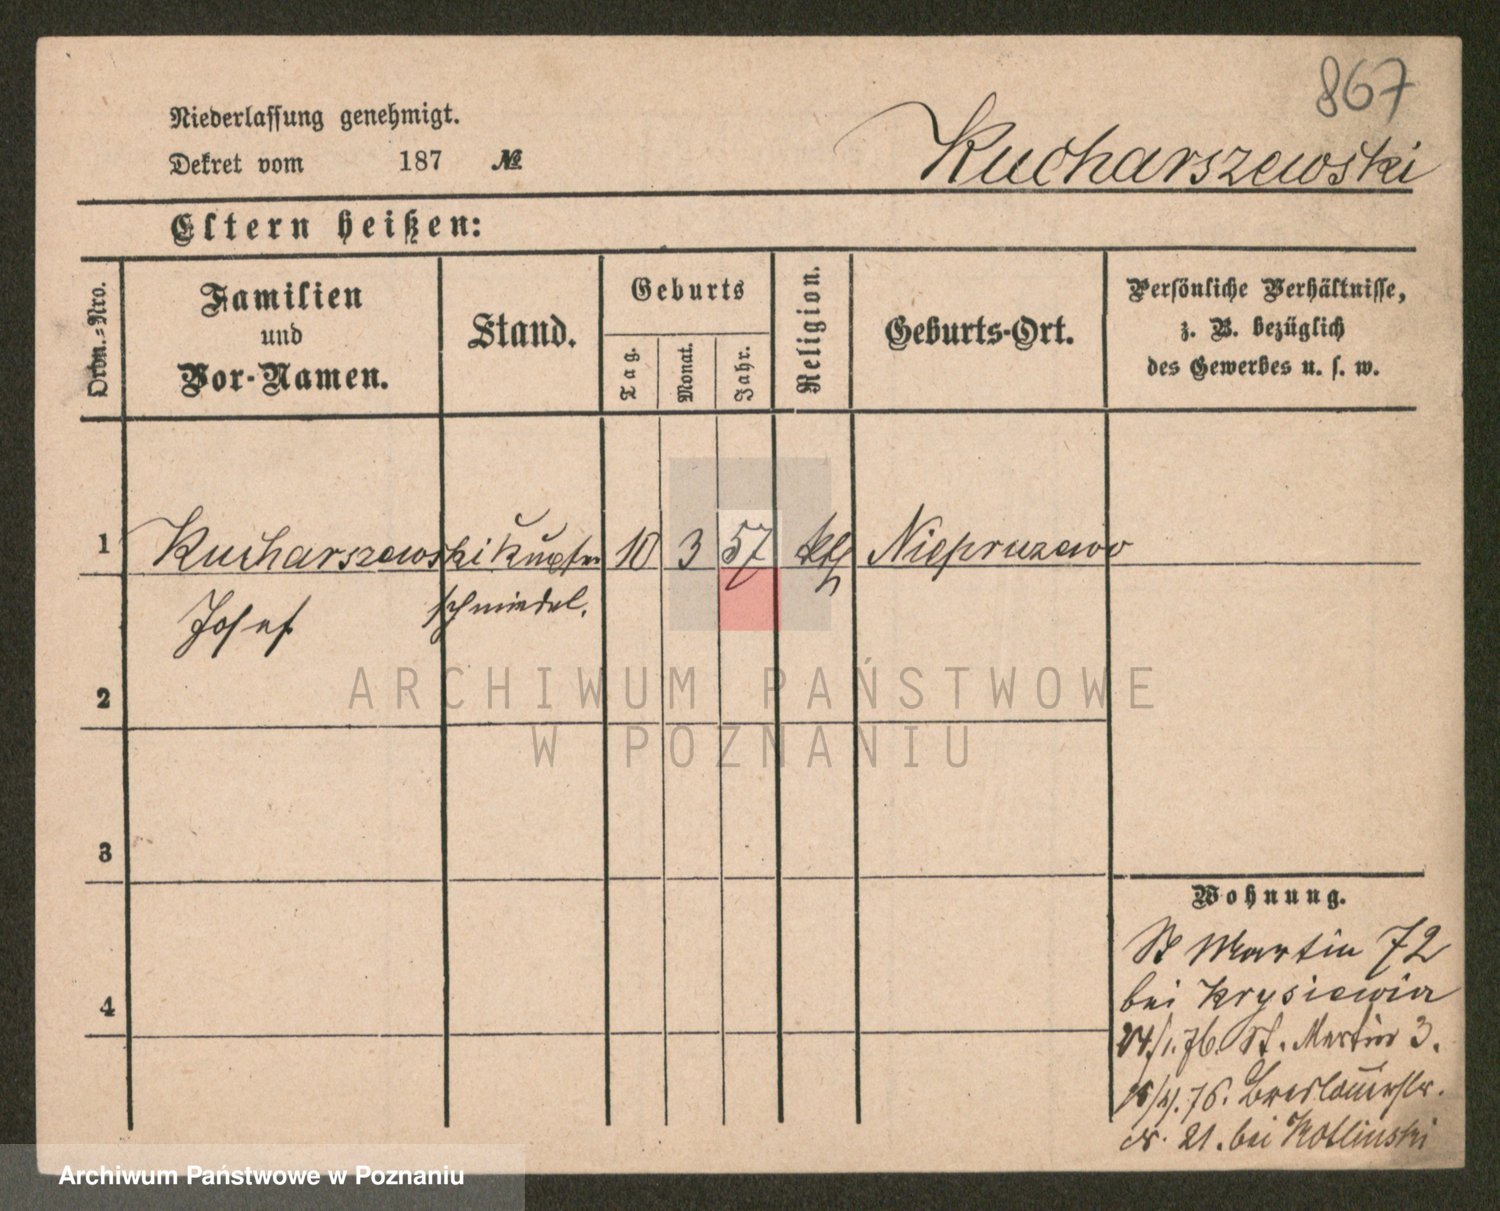 867
Niederlassung genehmigt.
Dekret vom 187 №
Kucharszewski
Eltern heißen:
Ordn.-Nro.
Familien
und
Vor-Namen.
Stand.
Geburts
Tag.
Monat.
Jahr.
Religion.
Geburts-Ort.
Persönliche Verhältnisse,
z. B. bezüglich
des Gewerbes u. s. w.
1 Kucharszewski Kupfer 10 3 57 kth Niepruzewo
Josef schmiedel.
2
3
4
Wohnung.
St Martin 72
bei Krysiewicz
24/1.76. St. Martin 3.
76. Breslauerstr.
Nr. 21. bei Kotlinski
ARCHIWUM PAŃSTWOWE
W POZNANIU
Archiwum Państwowe w Poznaniu